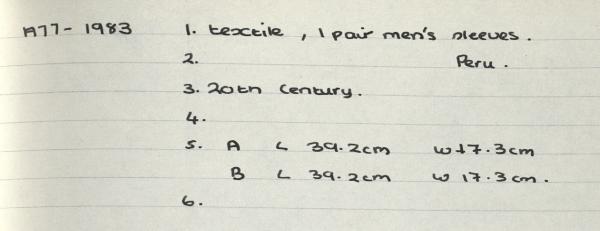 A77-1983 1. textile, 1 pair men's sleeves.
2. Peru.
3. 20th Century.
4.
5. A L 39.2cm W 17.3cm
B L 39.2cm W 17.3cm.
6.